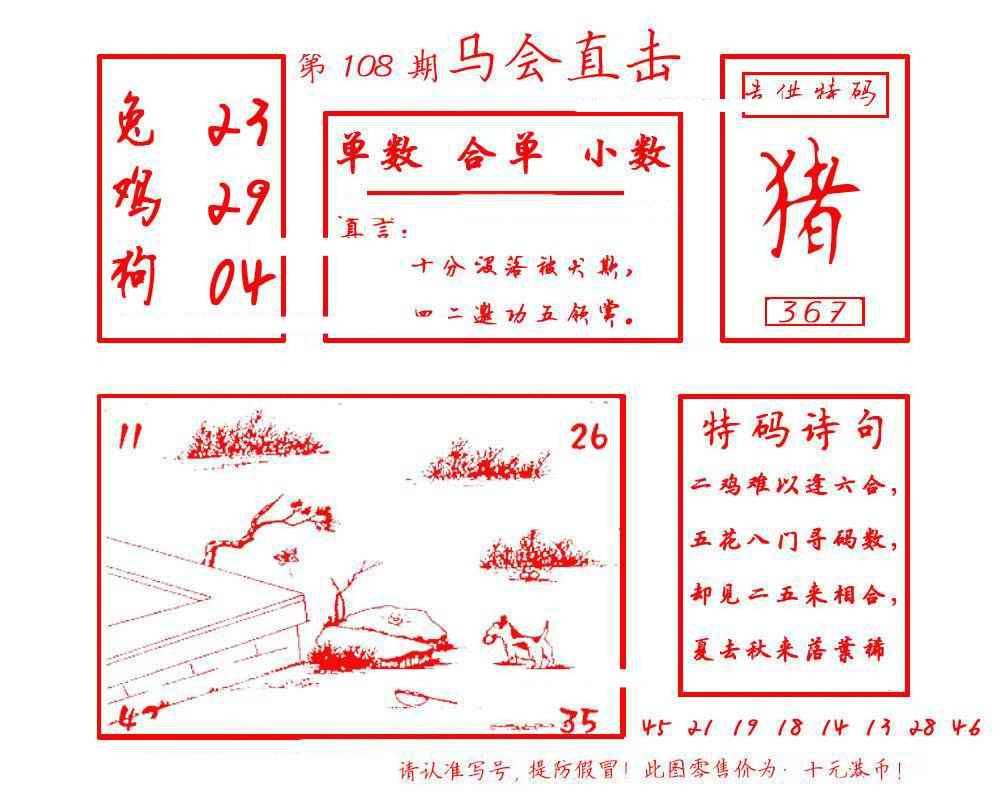 第 108 期 马会直击
兔 23
鸡 29
狗 04
单数 合单 小数
真言：
十分没落被犬欺，
四二邀功五领赏。
特码
猪
367
11
26
35
特码诗句
二鸡难以逢六合，
五花八门寻码数，
却见二五来相合，
夏去秋来落葉稀
45 21 19 18 14 13 28 46
请认准写号，提防假冒！此图零售价为·十元港币！